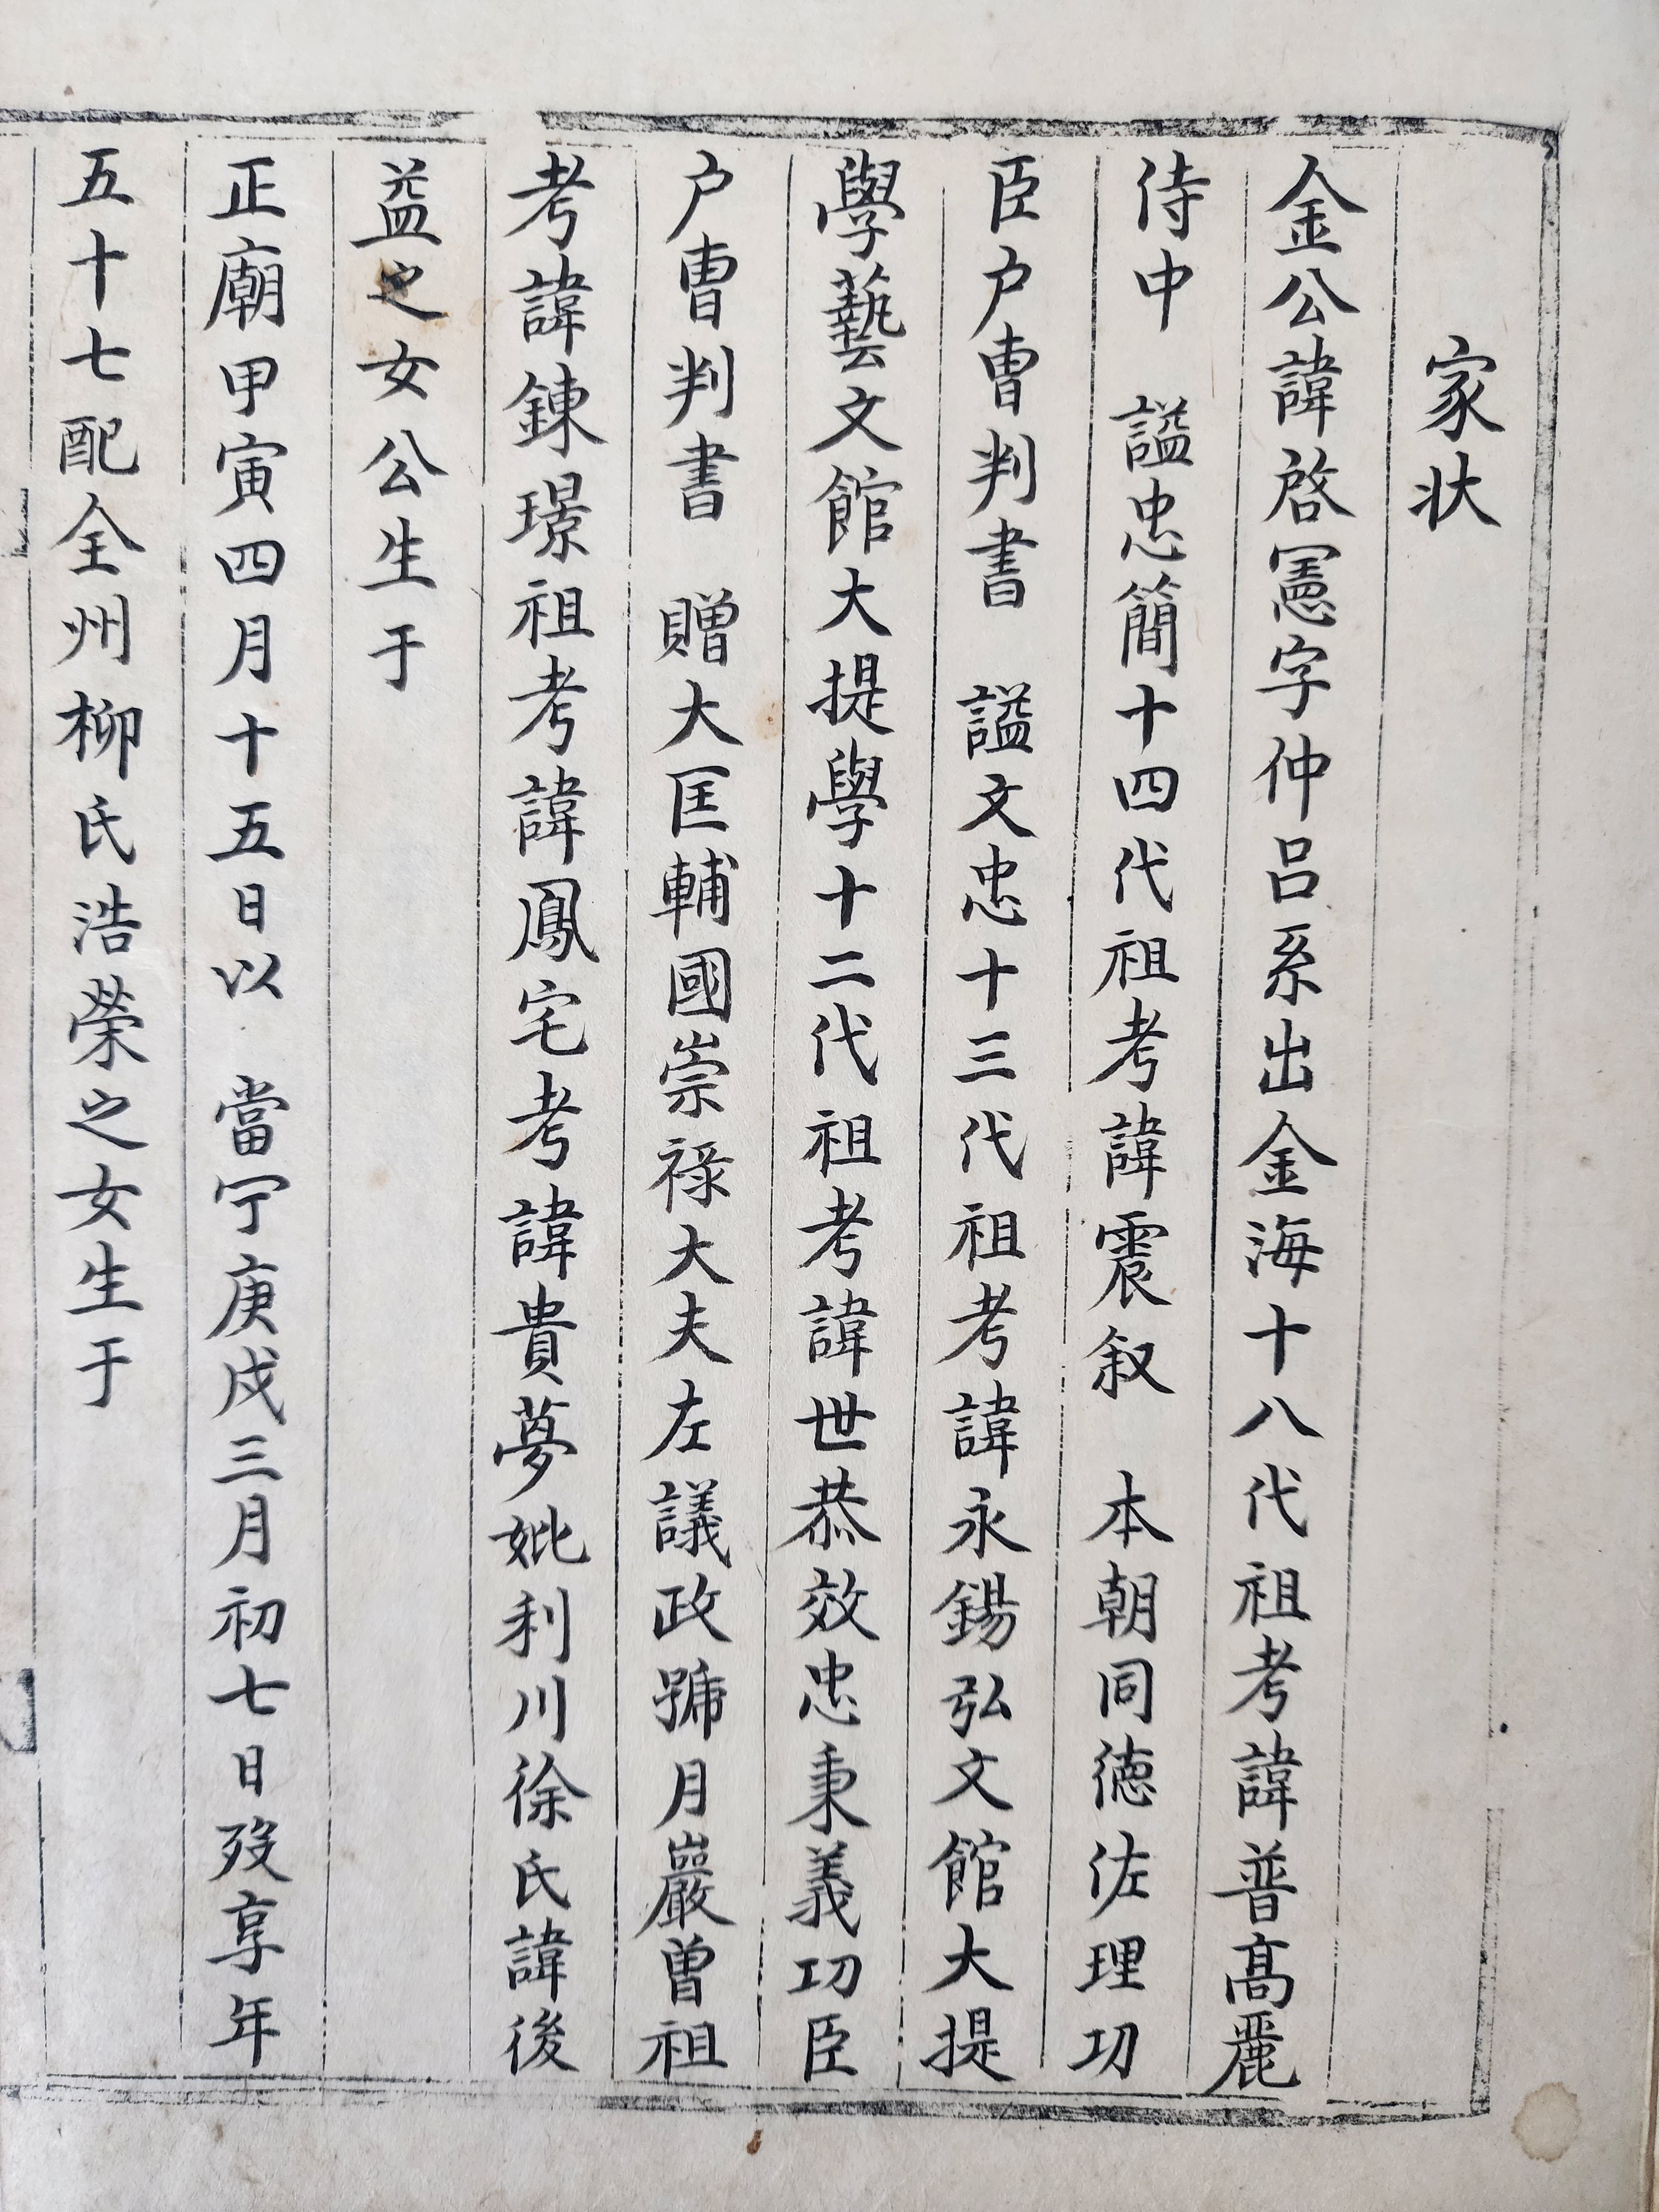 家状
金公諱啓憲字仲呂系出金海十八代祖考諱普高麗
侍中 謚忠簡十四代祖考諱震叙 本朝同德佐理功
臣户曺判書 謚文忠十三代祖考諱永錫弘文館大提
學藝文館大提學十二代祖考諱世恭效忠秉義功臣
户曺判書 贈大匡輔國崇禄大夫左議政號月巖曽祖
考諱鍊璟祖考諱鳳宅考諱貴夢妣利川徐氏諱後
益之女公生于
正廟甲寅四月十五日以 當宁庚戌三月初七日歿享年
五十七配全州柳氏浩榮之女生于